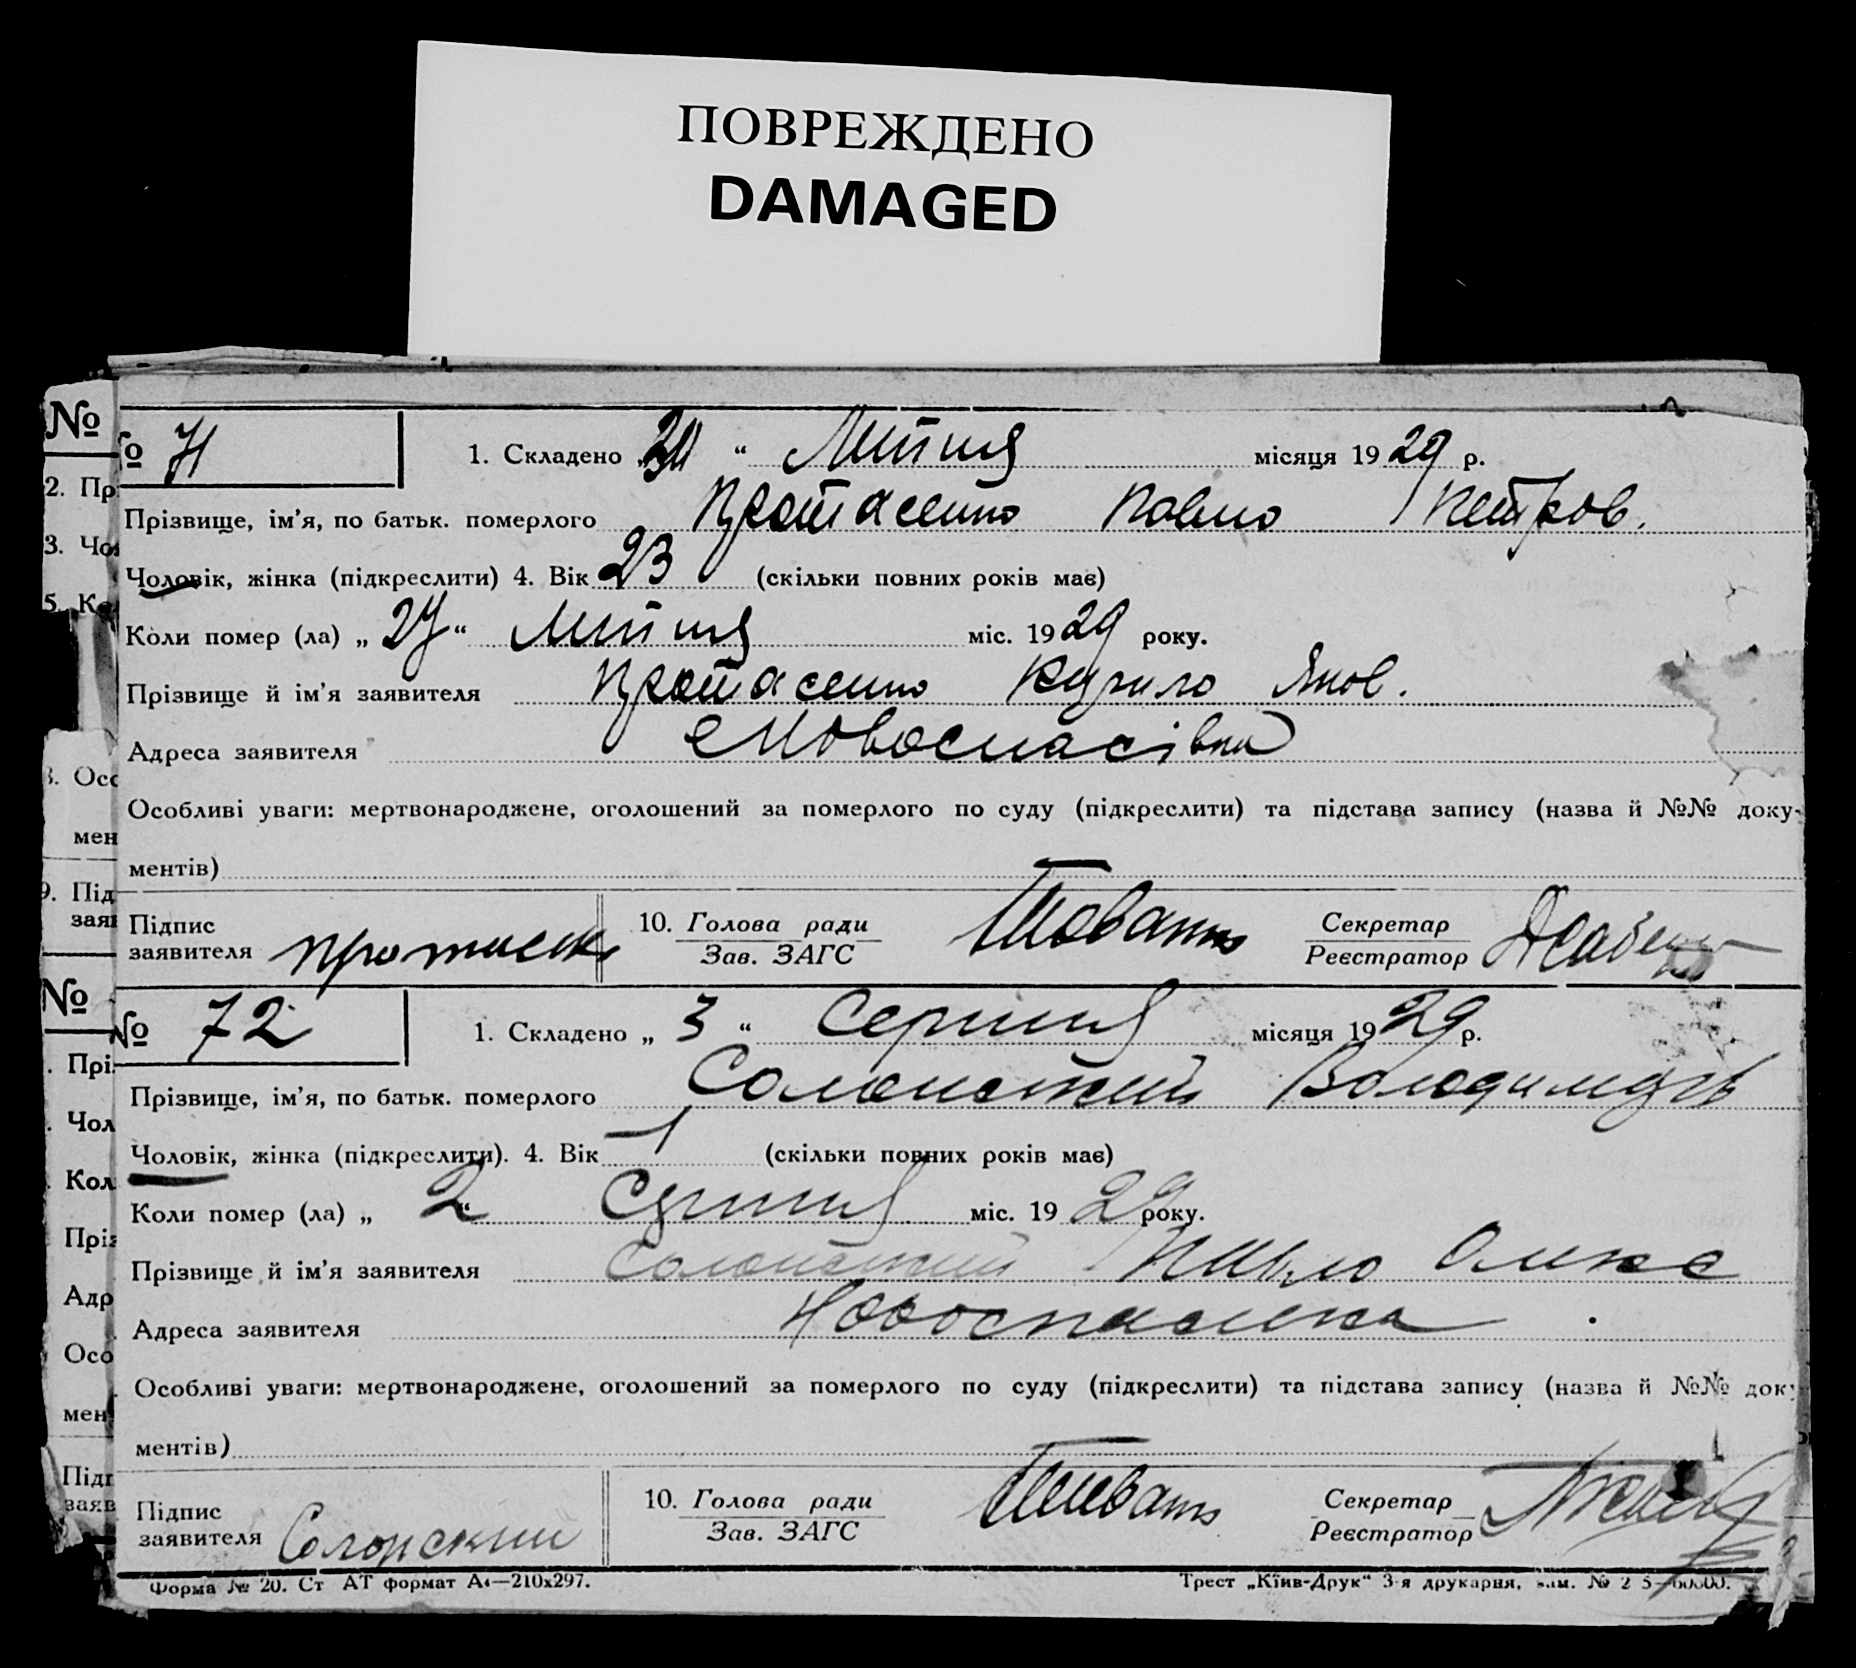 ПОВРЕЖДЕНО
DAMAGED
№
№ 71
1. Складено „ “ Липня місяця 1929 р.
2. Пр
Прізвище, ім’я, по батьк. померлого Протасенко Павло Петров.
3. Чо
Чоловік, жінка (підкреслити) 4. Вік 23 (скільки повних років має)
5. К
Коли помер (ла) „ 27 “ Липня міс. 1929 року.
Прізвище й ім’я заявителя Протасенко Курило Яков.
Адреса заявителя Новоспасівка
8. Осо
Особливі уваги: мертвонароджене, оголошений за померлого по суду (підкреслити) та підстава запису (назва й №№ доку-
мен
ментів)
9. Під
зая
Підпис
заявителя
10. Голова ради
Зав. ЗАГС
Секретар
Реєстратор
№
№ 72
1. Складено „ 3 “ Серпня місяця 1929 р.
. Прі
Прізвище, ім’я, по батьк. померлого Солонский Володимиръ
. Чол
Чоловік, жінка (підкреслити). 4. Вік 1 (скільки повних років має)
Кол
Коли помер (ла) „ 2 “ Серпня міс. 1929 року.
Пріз
Прізвище й ім’я заявителя Солонский
Адр
Адреса заявителя Новоспасівка
Осо
Особливі уваги: мертвонароджене, оголошений за померлого по суду (підкреслити) та підстава запису (назва й №№ док
мен
ментів)
Підп
заяв
Підпис
заявителя Солонский
10. Голова ради
Зав. ЗАГС
Секретар
Реєстратор
Форма № 20. Ст АТ формат А4—210x297.
Трест „Київ-Друк“ 3-я друкарня, зам. №